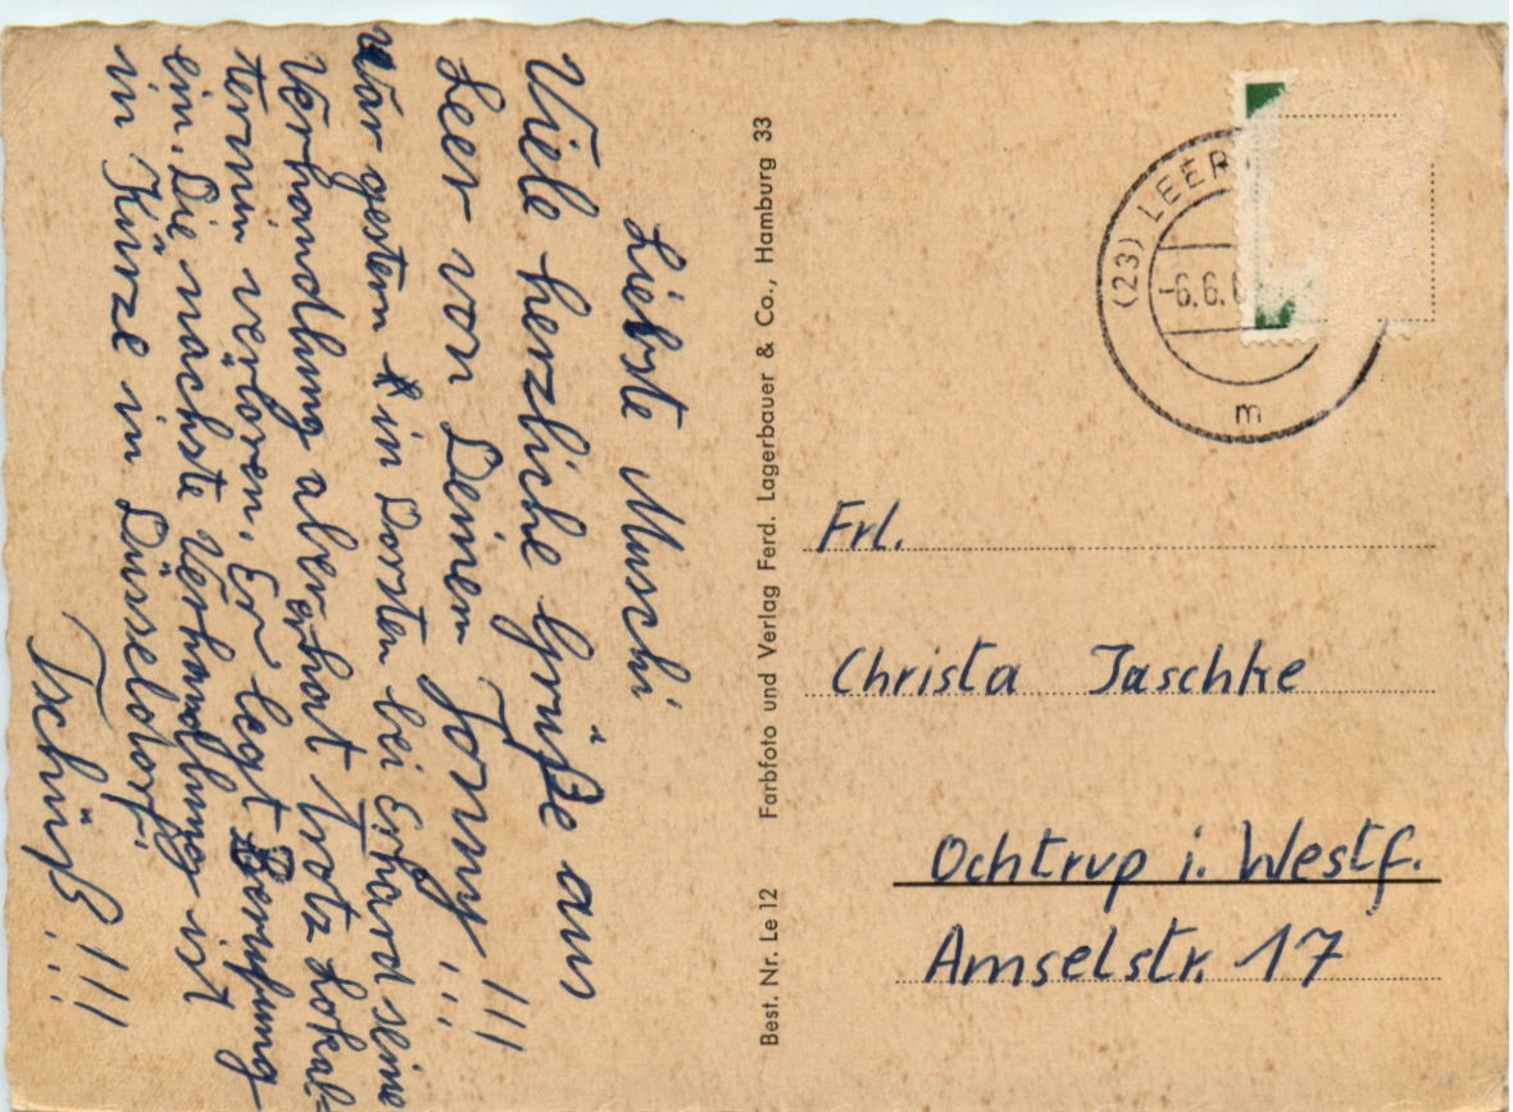 Liebste Muschi
Viele herzliche Grüße aus
Leer von Deinem Tommy!!!
War gestern in Dorsten bei Erhard seine
Verhandlung aber er hat trotz Lokal-
termin verloren. Er legt Berufung
ein. Die nächste Verhandlung ist
in Kürze in Düsseldorf.
Tschüß!!!
Best. Nr. Le 12 Farbfoto und Verlag Ferd. Lagerbauer & Co., Hamburg 33
(23) LEER
-6.6.
m
Frl.
Christa Jaschke
Ochtrup i. Westf.
Amselstr. 17